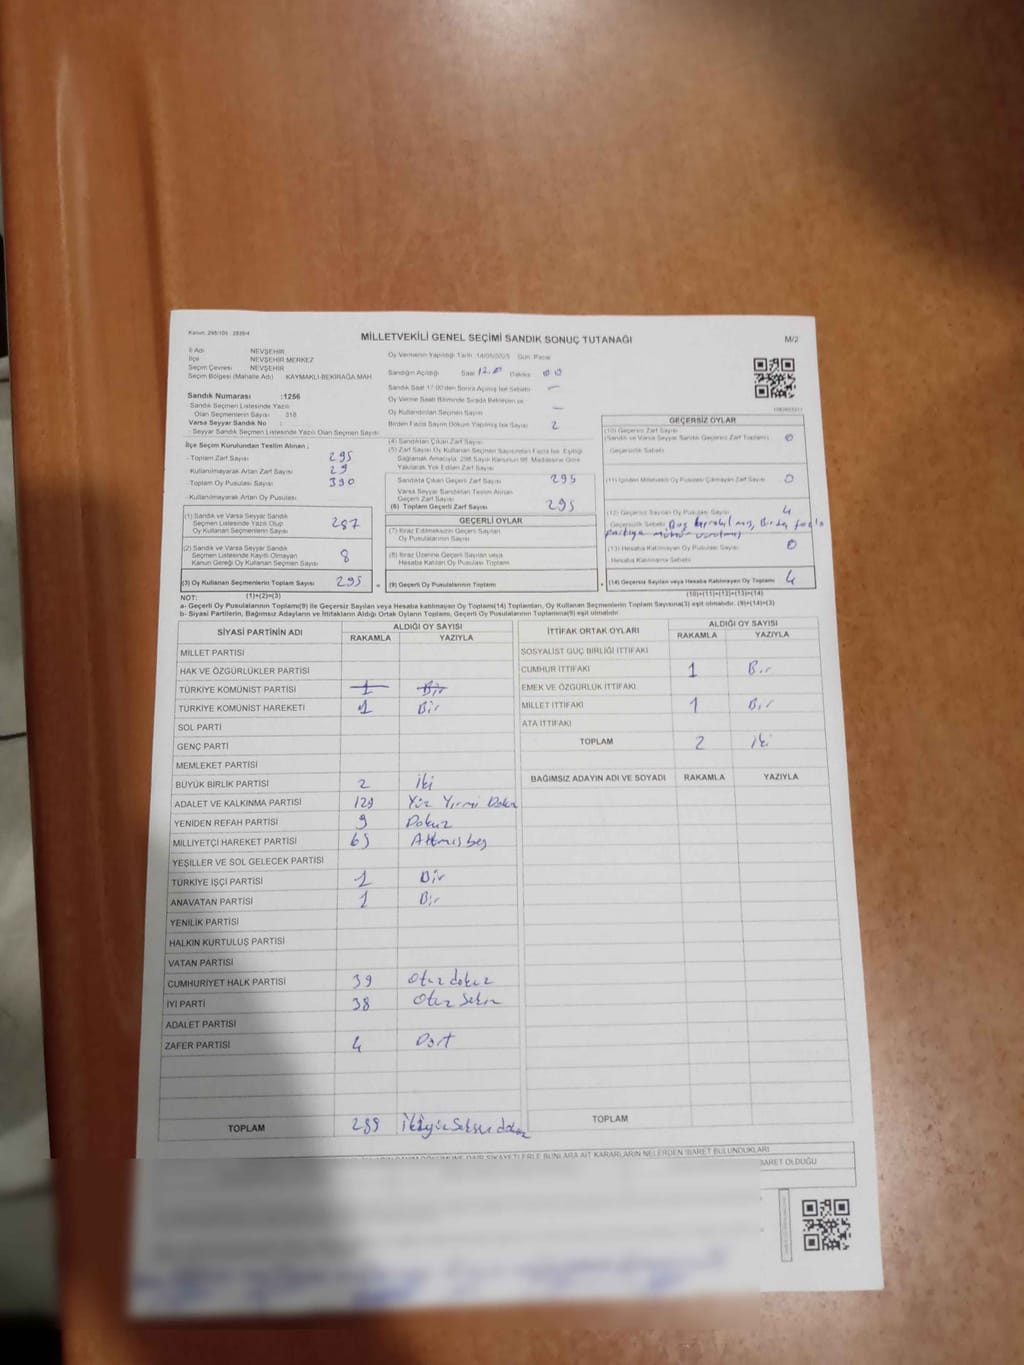 Kanun: 298/105 , 2839/4
MİLLETVEKİLİ GENEL SEÇİMİ SANDIK SONUÇ TUTANAĞI
M/2
İl Adı NEVŞEHİR
İlçe NEVŞEHİR MERKEZ
Seçim Çevresi NEVŞEHİR
Seçim Bölgesi (Mahalle Adı) : KAYMAKLI-BEKİRAĞA MAH.
Oy Vermenin Yapıldığı Tarih 14/05/2023 Gün Pazar
Sandığın Açıldığı Saat Dakika
Sandık Saat 17.00'den Sonra Açılmış İse Sebebi —
Oy Verme Saati Bitiminde Sırada Bekleyen ve
Oy Kullandırılan Seçmen Sayısı —
Birden Fazla Sayım Döküm Yapılmış İse Sayısı 2
Sandık Numarası :1256
Sandık Seçmen Listesinde Yazılı
Olan Seçmenlerin Sayısı 318
Varsa Seyyar Sandık No :
Seyyar Sandık Listesinde Yazılı Olan Seçmen Sayısı
İlçe Seçim Kurulundan Teslim Alınan ;
- Toplam Zarf Sayısı 295
- Kullanılmayarak Artan Zarf Sayısı 29
- Toplam Oy Pusulası Sayısı 330
- Kullanılmayarak Artan Oy Pusulası
(1) Sandık ve Varsa Seyyar Sandık
Seçmen Listesinde Yazılı Olup
Oy Kullanan Seçmenlerin Sayısı 287
(2) Sandık ve Varsa Seyyar Sandık
Seçmen Listesinde Kayıtlı Olmayan
Kanun Gereği Oy Kullanan Seçmen Sayısı 8
(3) Oy Kullanan Seçmenlerin Toplam Sayısı 295
(1)+(2)=(3)
(4) Sandıktan Çıkan Zarf Sayısı
(5) Zarf Sayısı Oy Kullanan Seçmen Sayısından Fazla İse, Eşitliği
Sağlamak Amacıyla, 298 Sayılı Kanunun 98. Maddesine Göre
Yakılarak Yok Edilen Zarf Sayısı
Sandıkta Çıkan Geçerli Zarf Sayısı 295
Varsa Seyyar Sandıktan Teslim Alınan
Geçerli Zarf Sayısı
(6) Toplam Geçerli Zarf Sayısı 295
GEÇERLİ OYLAR
(7) İtiraz Edilmeksizin Geçerli Sayılan
Oy Pusulasının Sayısı
(8) İtiraz Üzerine Geçerli Sayılan veya
Hesaba Katılan Oy Pusulası Sayısı
= (9) Geçerli Oy Pusulalarının Toplamı
GEÇERSİZ OYLAR
(10) Geçersiz Zarf Sayısı
(Sandık ve Varsa Seyyar Sandık Geçersiz Zarf Toplamı) 0
Geçersizlik Sebebi
(11) İçinden Milletvekili Oy Pusulası Çıkmayan Zarf Sayısı 0
(12) Geçersiz Sayılan Oy Pusulası Sayısı 4
Geçersizlik Sebebi Boş bırakılmış, Birden fazla
partiye mühür vurulmuş
(13) Hesaba Katılmayan Oy Pusulası Sayısı 0
Hesaba Katılmama Sebebi
+ (14) Geçersiz Sayılan veya Hesaba Katılmayan Oy Toplamı 4
(10)+(11)+(12)+(13)=(14)
NOT:
a- Geçerli Oy Pusulalarının Toplamı(9) ile Geçersiz Sayılan veya Hesaba katılmayan Oy Toplamı(14) Toplamları, Oy Kullanan Seçmenlerin Toplam Sayısına(3) eşit olmalıdır. (9)+(14)=(3)
b- Siyasi Partilerin, Bağımsız Adayların ve İttifakların Aldığı Ortak Oyların Toplamı, Geçerli Oy Pusulalarının Toplamına(9) eşit olmalıdır.
SİYASİ PARTİNİN ADI ALDIĞI OY SAYISI
RAKAMLA YAZIYLA
MİLLET PARTİSİ
HAK VE ÖZGÜRLÜKLER PARTİSİ
TÜRKİYE KOMÜNİST PARTİSİ 1 Bir
TÜRKİYE KOMÜNİST HAREKETİ 1 Bir
SOL PARTİ
GENÇ PARTİ
MEMLEKET PARTİSİ
BÜYÜK BİRLİK PARTİSİ 2 iki
ADALET VE KALKINMA PARTİSİ 129 Yüz Yirmi Dokuz
YENİDEN REFAH PARTİSİ 9 Dokuz
MİLLİYETÇİ HAREKET PARTİSİ 65 Altmış beş
YEŞİLLER VE SOL GELECEK PARTİSİ
TÜRKİYE İŞÇİ PARTİSİ 1 Bir
ANAVATAN PARTİSİ 1 Bir
YENİLİK PARTİSİ
HALKIN KURTULUŞ PARTİSİ
VATAN PARTİSİ
CUMHURİYET HALK PARTİSİ 39 otuz dokuz
İYİ PARTİ 38 otuz sekiz
ADALET PARTİSİ
ZAFER PARTİSİ 4 Dört
TOPLAM 289 ikiyüz seksen dokuz
İTTİFAK ORTAK OYLARI ALDIĞI OY SAYISI
RAKAMLA YAZIYLA
SOSYALİST GÜÇ BİRLİĞİ İTTİFAKI
CUMHUR İTTİFAKI 1 Bir
EMEK VE ÖZGÜRLÜK İTTİFAKI
MİLLET İTTİFAKI 1 Bir
ATA İTTİFAKI
TOPLAM 2 iki
BAĞIMSIZ ADAYIN ADI VE SOYADI RAKAMLA YAZIYLA
TOPLAM
ŞİKAYETLERLE BUNLARA AİT KARARLARIN NELERDEN İBARET BULUNDUKLARI
İBARET OLDUĞU